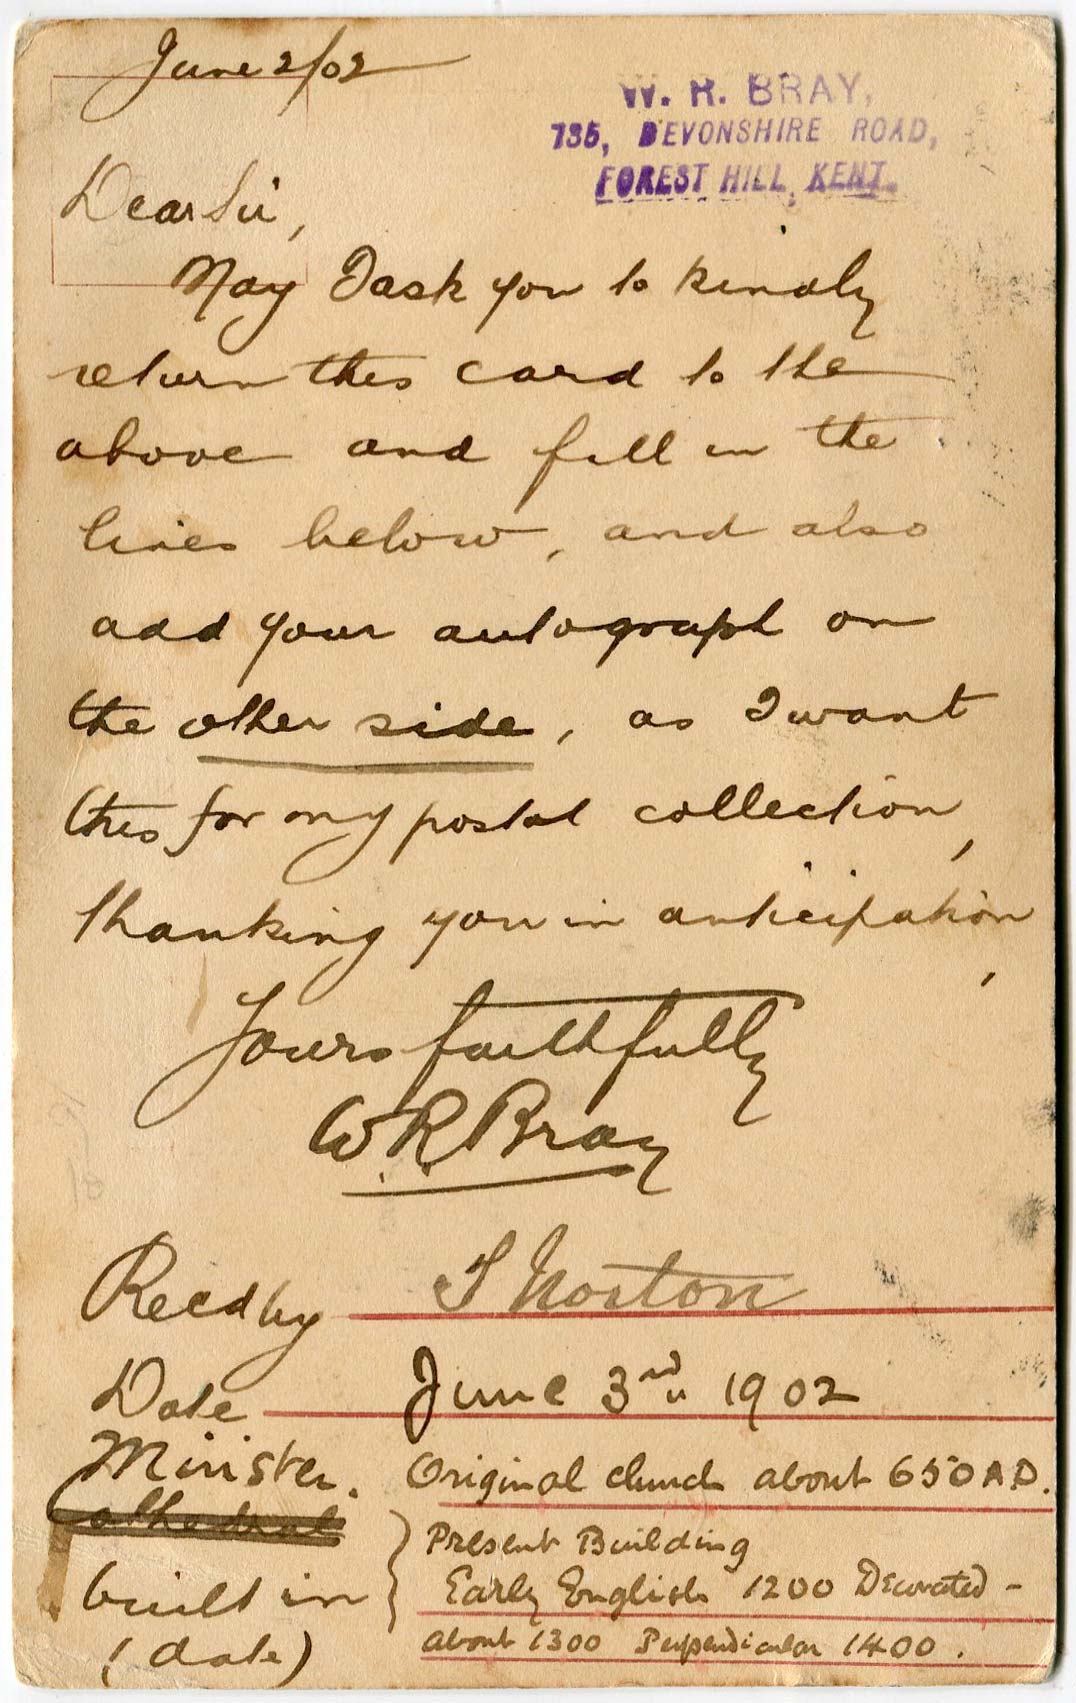 June 2/02
W. R. BRAY,
135, DEVONSHIRE ROAD,
FOREST HILL, KENT.
Dear Sir,
May I ask you to kindly
return this card to the
above and fill in the
lines below, and also
add your autograph on
the other side, as I want
this for my postal collection,
thanking you in anticipation,
Yours faithfully
W. R. Bray
Recd by
Norton
Date June 3rd 1902
Minster. Original church about 650 A.D.
Cathedral
built in
(date)
Present Building
Early English 1200 Decorated -
about 1300 Perpendicular 1400.